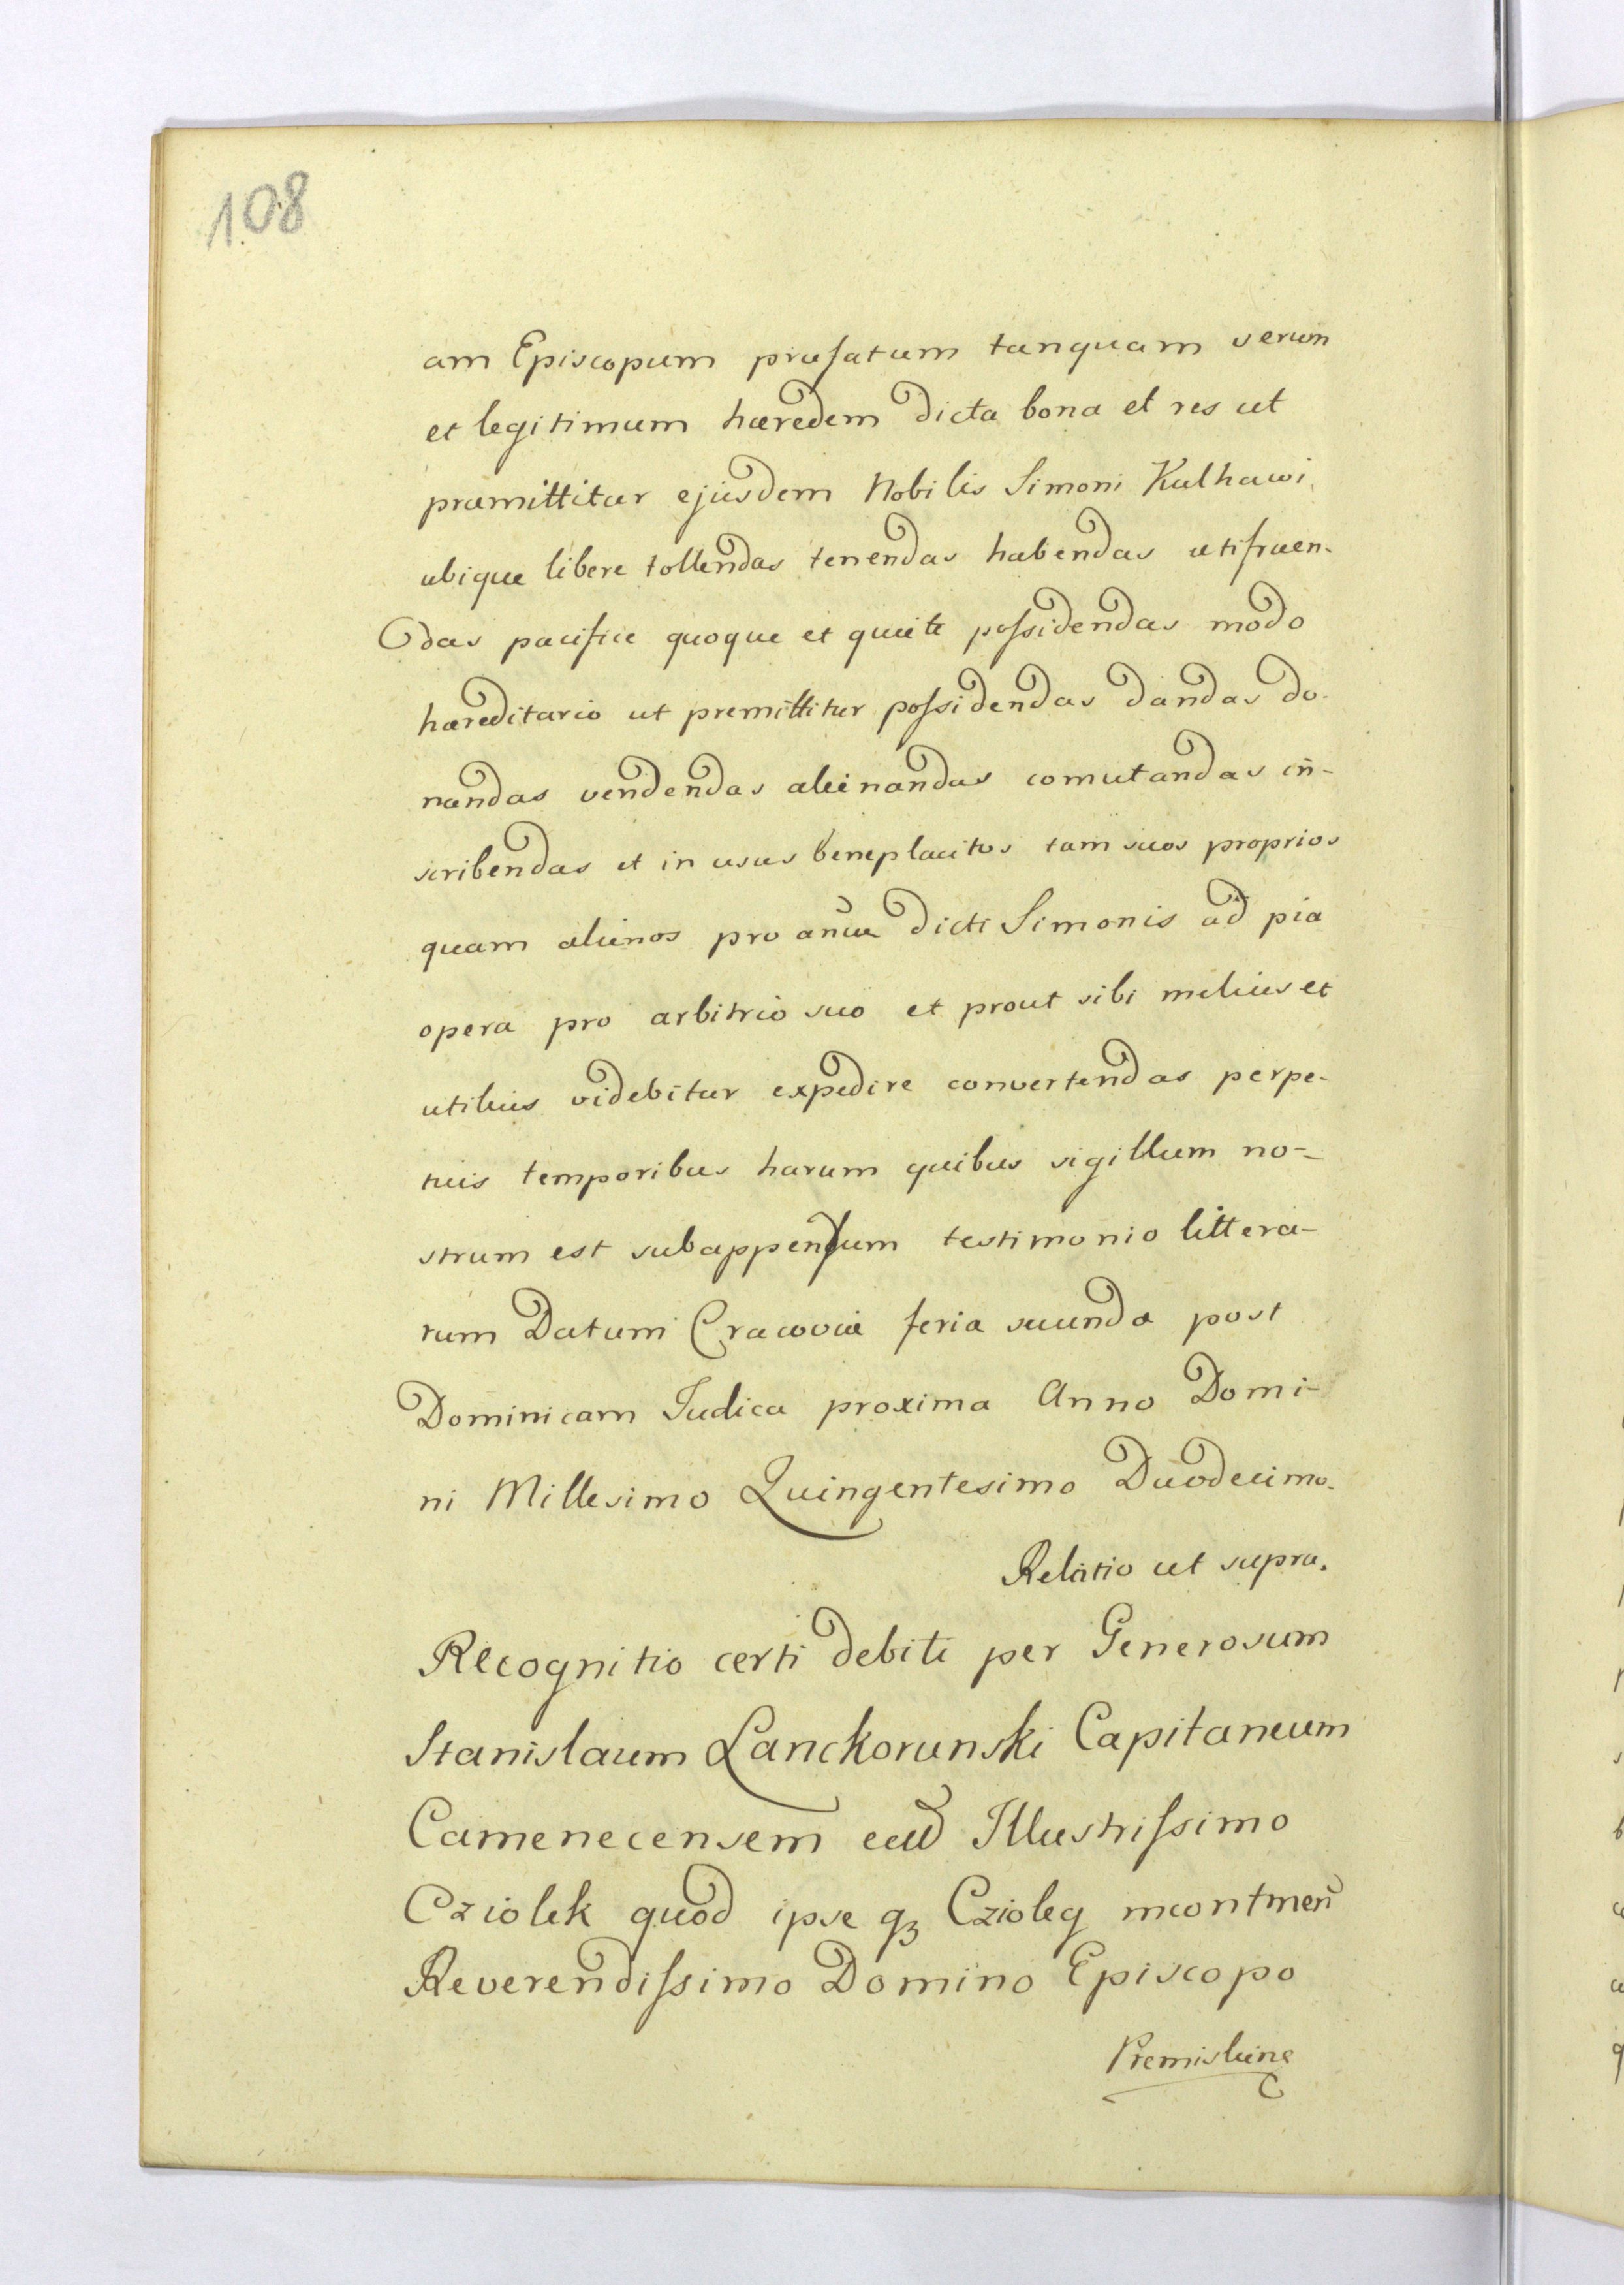 108
am Episcopum præfatum tanquam verum
et legitimum hæredem dicta bona et res ut
præmittitur ejusdem Nobilis Simoni Kulhawi
ubique libere tollendas tenendas habendas utifruen-
das pacifice quoque et quiete possidendas modo
hæreditario ut premittitur possidendas dandas do-
nandas vendendas alienandas comutandas in-
scribendas et in usus beneplacitos tam suos proprios
quam alienos pro dicti Simonis ad pia
opera pro arbitrio suo et prout sibi melius et
utilius videbitur expedire convertendas perpe-
tuis temporibus harum quibus sigillum no-
strum est subappensum testimonio littera-
rum Datum Cracoviæ feria secunda post
Dominicam Judica proxima Anno Domi-
ni Millesimo Quingentesimo Duodecimo.
Relatio ut supra.
Recognitio certi debiti per Generosum
Stanislaum Lanckorunski Capitaneum
Camenecensem Illustrissimo
Cziolek quod ipse Czioleg
Reverendissimo Domino Episcopo